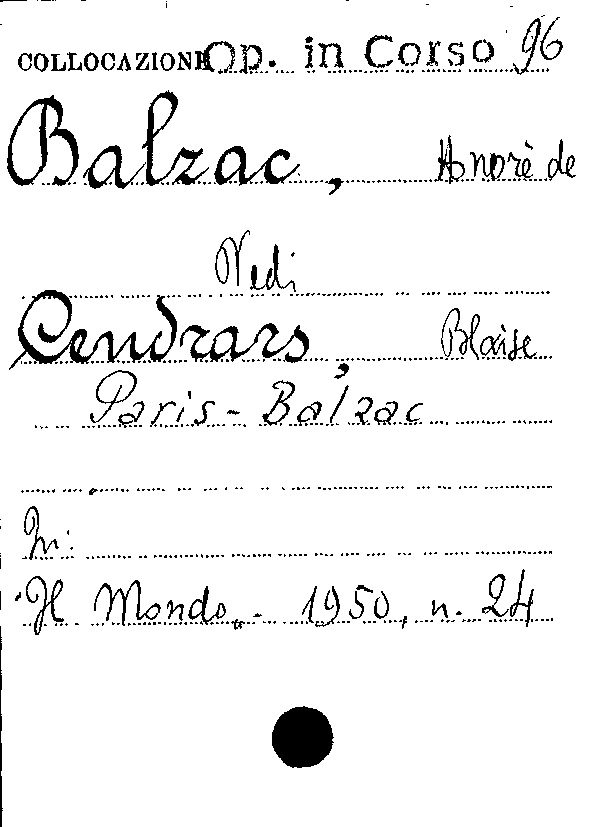 COLLOCAZIONE Op. in Corso 96
Balzac, Honorè de
Vedi
Cendrars, Blaise
Paris - Balzac
In:
"Il Mondo". - 1950, n. 24